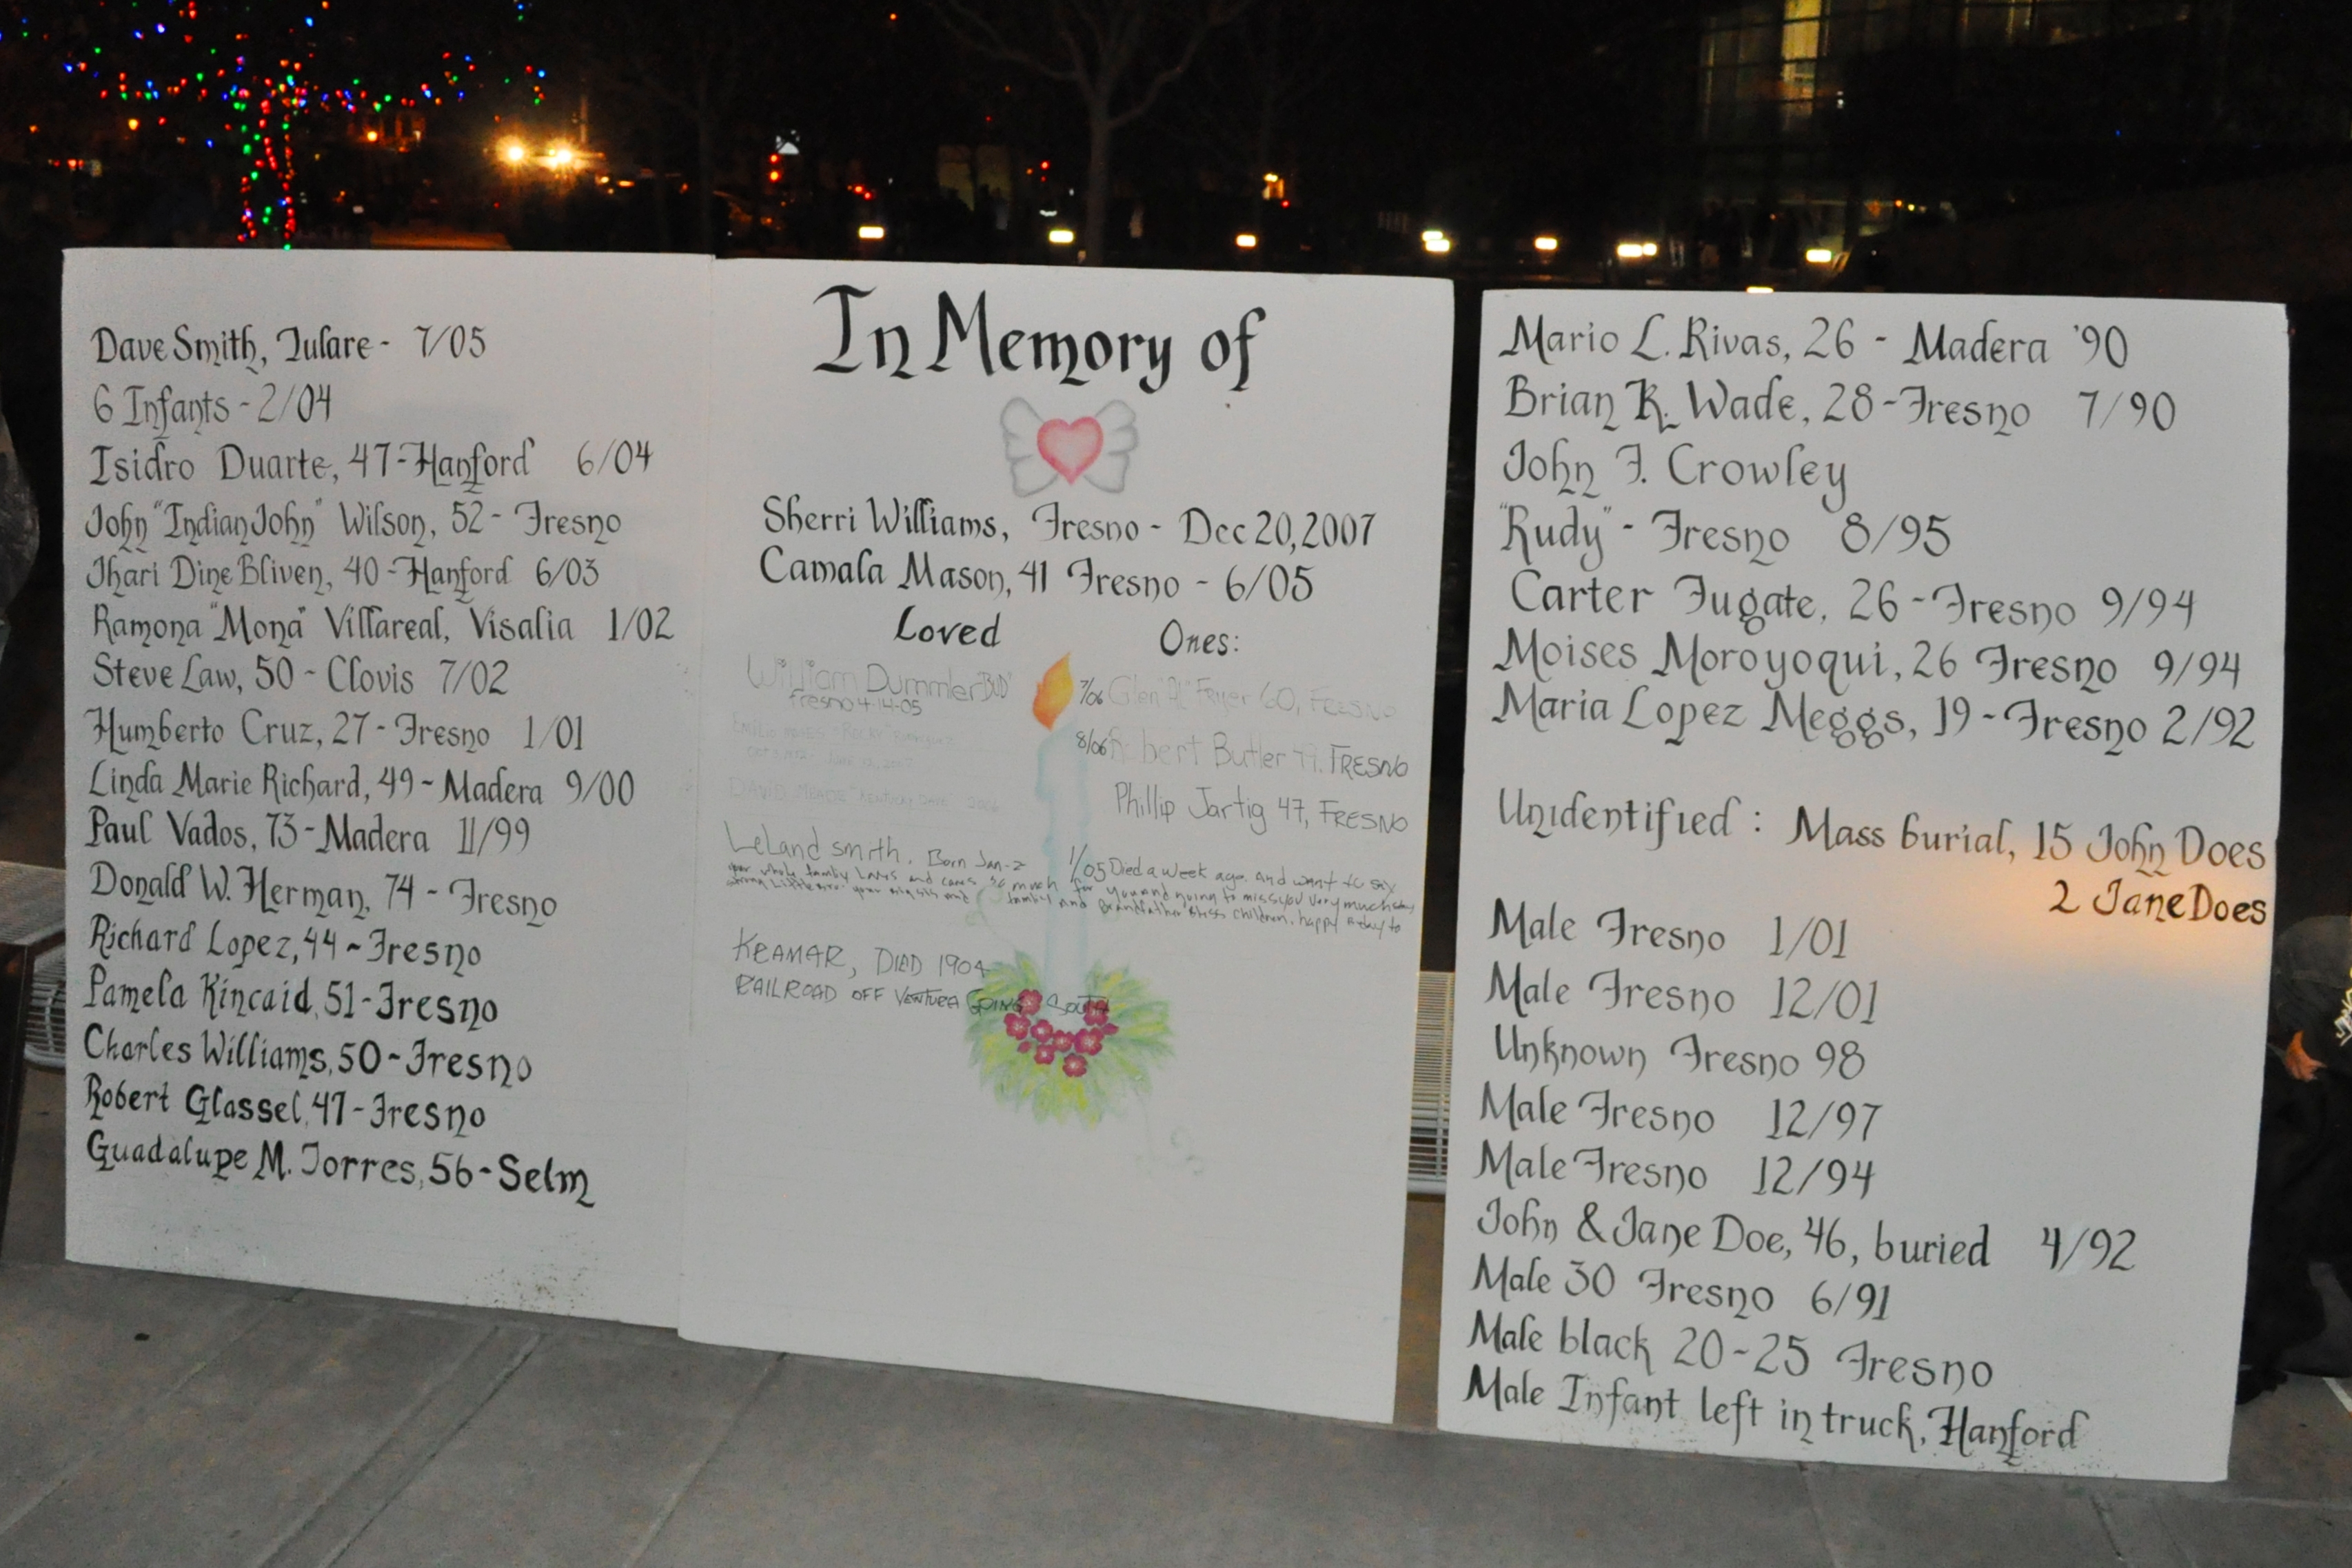 Dave Smith, Tulare - 7/05
6 Infants - 2/04
Isidro Duarte, 47 - Hanford 6/04
John "Indian John" Wilson, 52 - Fresno
Jhari Dine Bliven, 40 - Hanford 6/03
Ramona "Mona" Villareal, Visalia 1/02
Steve Law, 50 - Clovis 7/02
Humberto Cruz, 27 - Fresno 1/01
Linda Marie Richard, 49 - Madera 9/00
Paul Vados, 73 - Madera 11/99
Donald W. Herman, 74 - Fresno
Richard Lopez, 44 - Fresno
Pamela Kincaid, 51 - Fresno
Charles Williams, 50 - Fresno
Robert Glassel, 47 - Fresno
Guadalupe M. Torres, 56 - Selm
In Memory of
Sherri Williams, Fresno - Dec 20, 2007
Camala Mason, 41 Fresno - 6/05
Loved Ones:
William Dummler "BUD"
fresno 4-14-05
DAVID "KENTUCKY DAVE"
Leland smith. Born Jan-2
your whole family Loves and cares so much for you and going to miss you very much
family and Grandfather Bless children. happy
KRAMAR, DIED 1904
RAILROAD OFF VENTURA GOING SOUTH
7/06 Glen "Al" Fryer 60, FRESNO
8/06 Robert Butler 77. FRESNO
Phillip Jartig 47, FRESNO
1/05 Died a week ago. and want to six
Mario L. Rivas, 26 - Madera '90
Brian K. Wade, 28 - Fresno 7/90
John F. Crowley
"Rudy" - Fresno 8/95
Carter Fugate, 26 - Fresno 9/94
Moises Moroyoqui, 26 Fresno 9/94
Maria Lopez Meggs, 19 - Fresno 2/92
Unidentified: Mass burial, 15 John Does
2 Jane Does
Male Fresno 1/01
Male Fresno 12/01
Unknown Fresno 98
Male Fresno 12/97
Male Fresno 12/94
John & Jane Doe, 46, buried 4/92
Male 30 Fresno 6/91
Male black 20-25 Fresno
Male Infant left in truck, Hanford